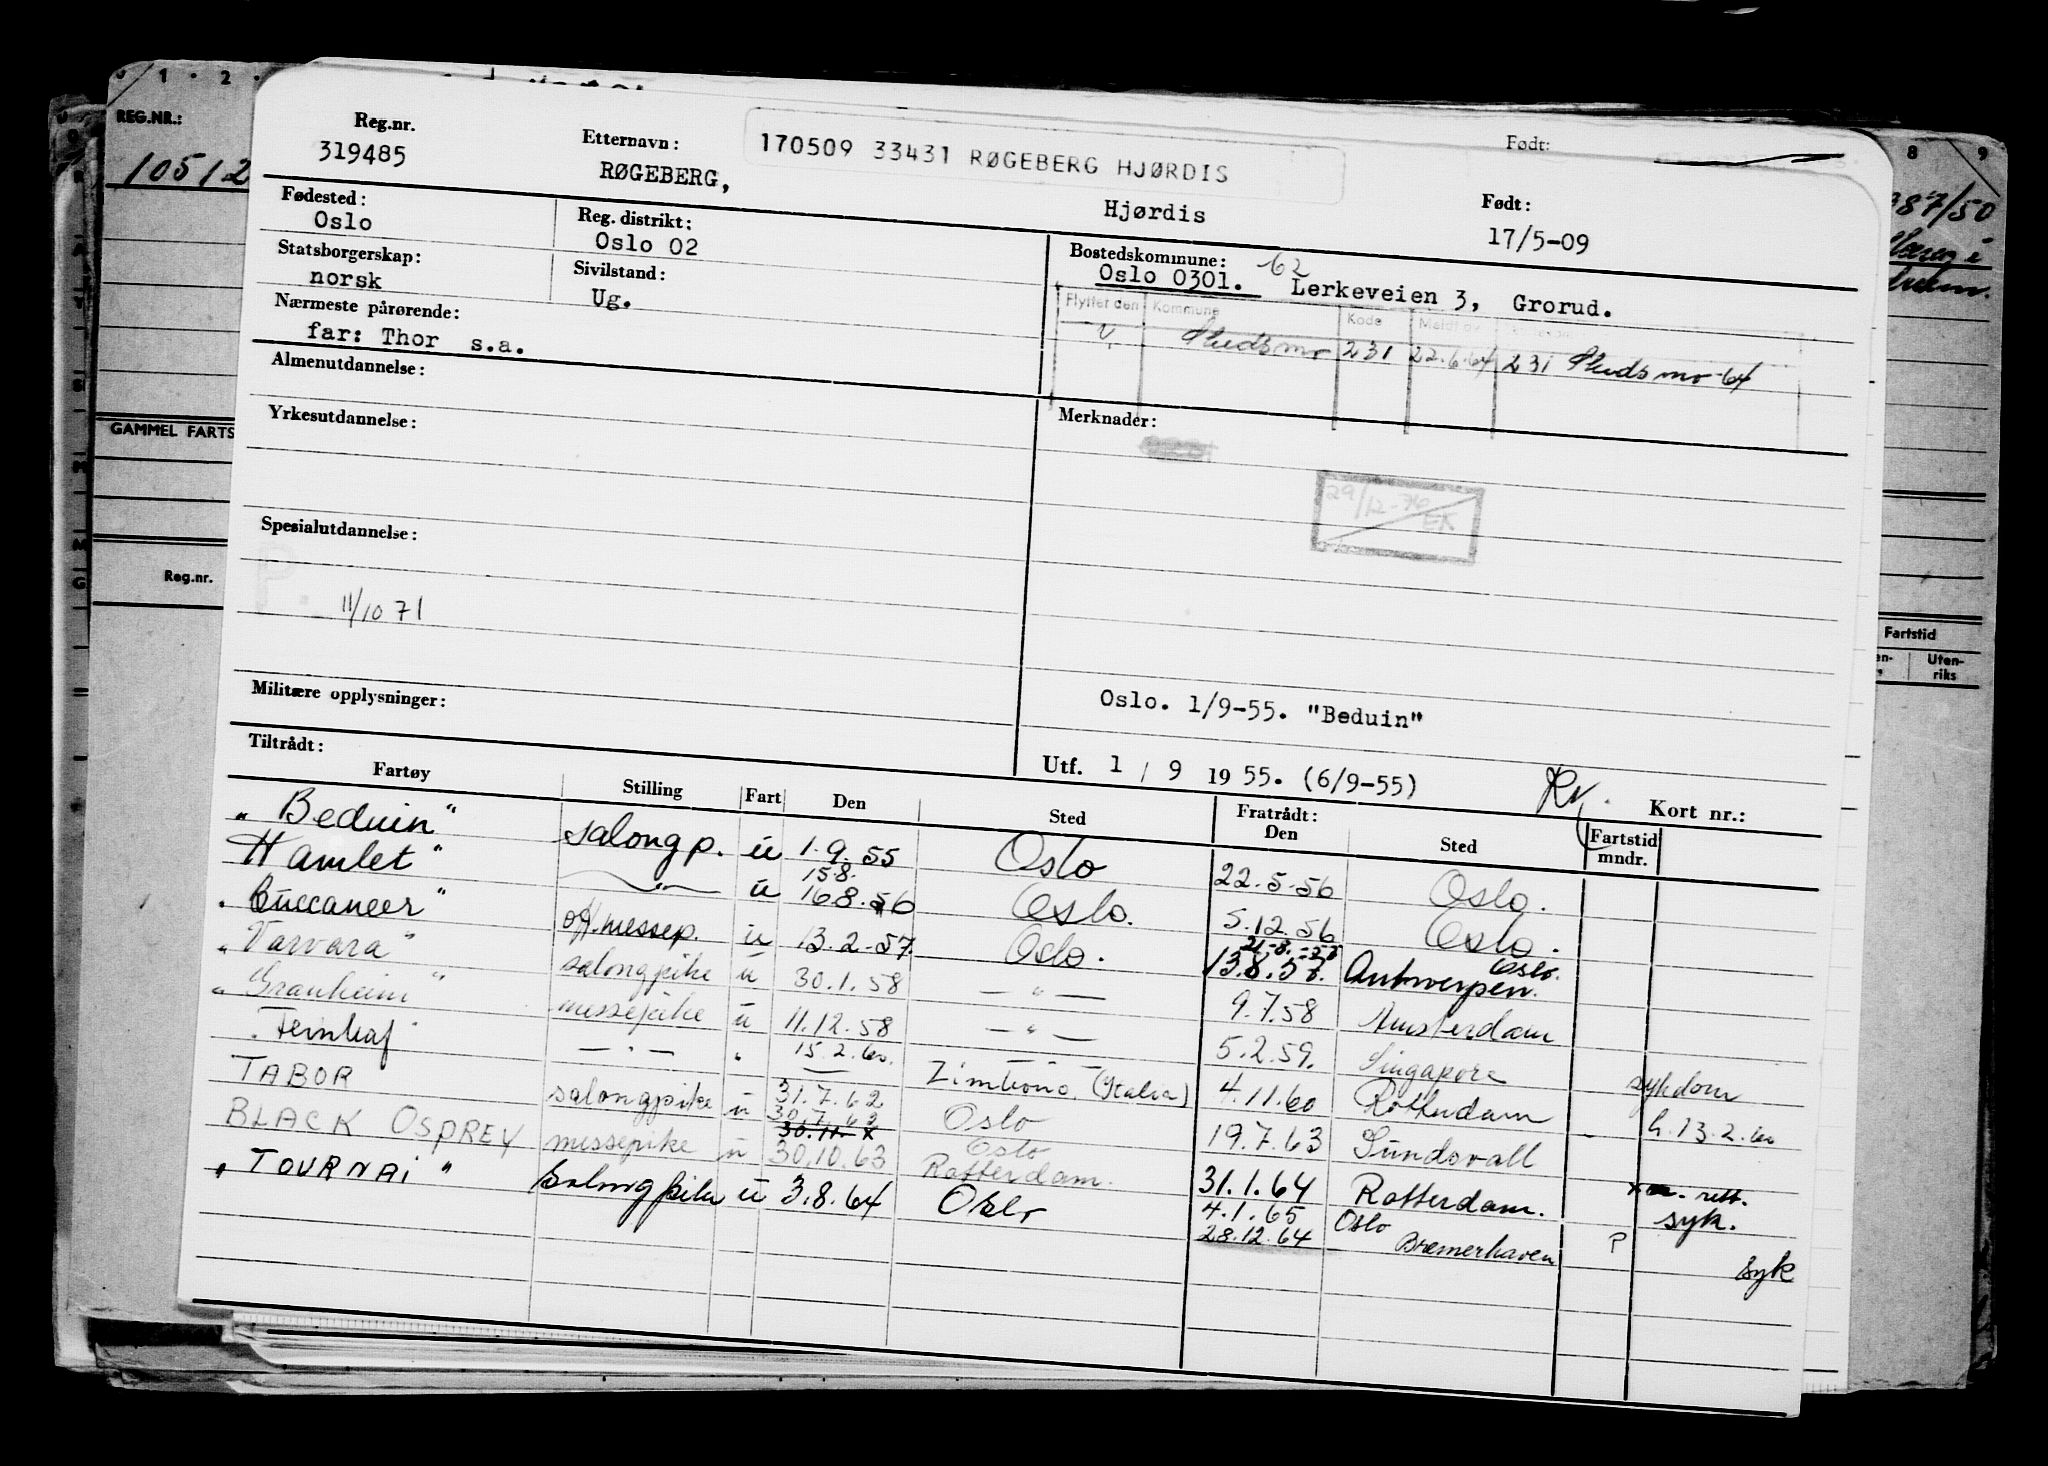 REG.NR.:
10512
GAMMEL FARTS
Reg.nr.
1 · 2
8 9
387/50
Fartstid
Uten-
riks
Reg.nr.
319485
Etternavn:
RØGEBERG,
170509 33431 RØGEBERG HJØRDIS
Født:
Hjørdis
Født:
17/5-09
Fødested:
Oslo
Reg. distrikt:
Oslo 02
Statsborgerskap:
norsk
Sivilstand:
Ug.
Nærmeste pårørende:
far: Thor s.a.
Bostedskommune: 62
Oslo 0301. Lerkeveien 3, Grorud.
Flyttet den Kommune Kode Meldt av
231 22.6.64 231 -64
Almenutdannelse:
Yrkesutdannelse:
Merknader:
29/12-76 EK
Spesialutdannelse:
P.
11/10 71
Militære opplysninger:
Oslo. 1/9-55. "Beduin"
Utf. 1 / 9 1955. (6/9-55)
Kort nr.:
Tiltrådt:
Fartøy Stilling Fart Den Sted Fratrådt: Den Sted Fartstid mndr.
"Beduin" salongp. u 1.9.55 Oslo 22.5.56 Oslo.
Hamlet" —"— u 15.8. 16.8.56 Oslo. 5.12.56 Oslo.
"Buccaneer" off.messep. u 13.2.57. Oslo. 21.-8.-57 13.8.57. Oslo. Antwerpen.
"Varvara" salongpike u 30.1.58 —"— 9.7.58 Amsterdam
"Granheim" messepike u 11.12.58 —"— 5.2.59. Singapore sykdom
"Fernleaf" —"— " 15.2.60. (Italia) 4.11.60 Rotterdam h. 13.2.60
TABOR salongpike u 31.7.62 Oslo 19.7.63 Sundsvall
BLACK OSPREY messepike u 30.7.63 30.10.63 Oslo Rotterdam. 31.1.64 Rotterdam. x rett. syk.
"TOURNAI" salongpike u 3.8.64 Oslo 4.1.65 28.12.64 Oslo Bremerhaven P syk